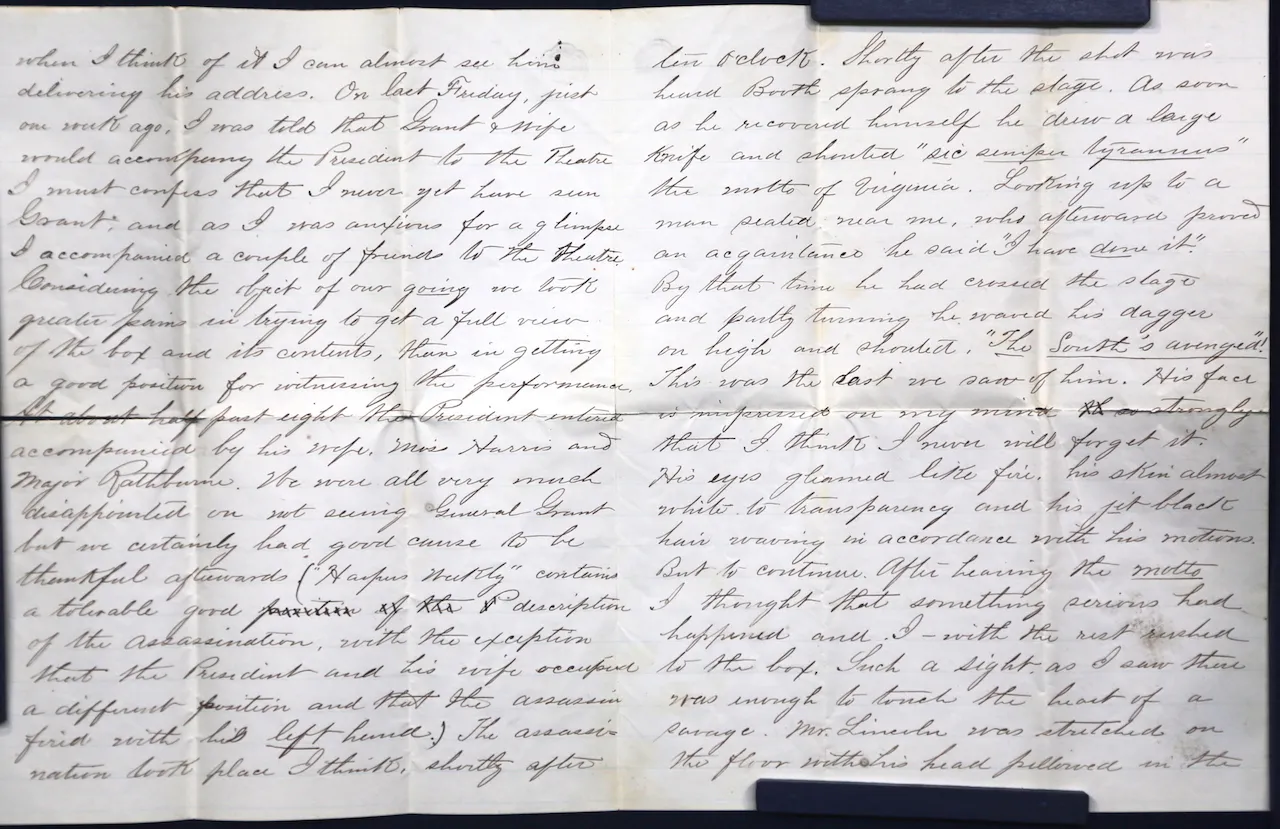 when I think of it I can almost see him
delivering his address. On last Friday, just
one week ago, I was told that Grant & Wife
would accompany the President to the Theatre
I must confess that I never yet have seen
Grant, and as I was anxious for a glimpse
I accompanied a couple of friends to the theatre.
Considering the object of our going we took
greater pains in trying to get a full view
of the box and its contents, than in getting
a good position for witnessing the performance.
At about half past eight the President entered
accompanied by his wife, Miss Harris and
Major Rathburne. We were all very much
disappointed on not seeing General Grant
but we certainly had good cause to be
thankful afterwards ("Harpers Weekly" contains
a tolerable good description
of the assassination, with the exception
that the President and his wife occupied
a different position and that the assassin
fired with his left hand.) The assassi-
nation took place I think, shortly after
ten O'clock. Shortly after the shot was
heard Booth sprang to the stage. As soon
as he recovered himself he drew a large
Knife and shouted "sic semper tyrannus"
the motto of Virginia. Looking up to a
man seated near me, who afterward proved
an acquaintance he said "I have done it".
By that time he had crossed the stage
and partly turning he waved his dagger
on high and shouted, "The South's avenged"!
This was the last we saw of him. His face
is impressed on my mind so strongly
that I think I never will forget it.
His eyes gleamed like fire, his skin almost
white to transparency and his jet black
hair waving in accordance with his motions.
But to continue. After hearing the motto
I thought that something serious had
happened and I – with the rest rushed
to the box. Such a sight as I saw there
was enough to touch the heart of a
savage. Mr. Lincoln was stretched on
the floor with his head pillowed in the